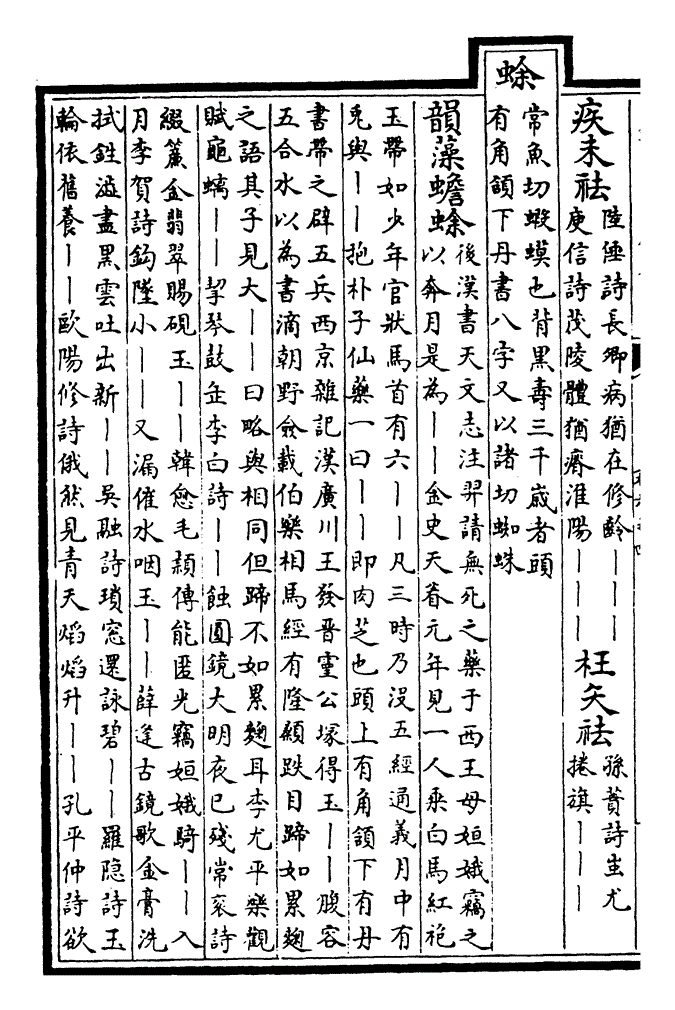 疾未袪
陸倕詩長卿病猶在修齡丨丨丨
庾信詩茂陵體猶瘠淮陽丨丨丨
枉矢袪
孫蕡詩蚩尤
捲旗丨丨丨
蜍
常魚切蝦蟆也背黑壽三千歳者頭
有角頷下丹書八字又以諸切蜘蛛
韻藻蟾蜍
後漢書天文志注羿請無死之藥于西王母姮娥竊之
以奔月是為丨丨金史天眷元年見一人乘白馬紅袍
玉帶如少年官狀馬首有六丨丨凡三時乃没五經通義月中有
兎與丨丨抱朴子仙藥一曰丨丨即肉芝也頭上有角頷下有丹
書帶之辟五兵西京雜記漢廣川王發晉靈公塚得玉丨丨腹容
五合水以為書滴朝野僉載伯樂相馬經有隆顙跌目蹄如累麴
之語其子見大丨丨曰略與相同但蹄不如累麴耳李尤平樂觀
賦龜螭丨丨挈琴鼓缶李白詩丨丨蝕圓鏡大明夜已殘常衮詩
綴簾金翡翠賜硯玉丨丨韓愈毛頴傳能匿光竊姮娥騎丨丨入
月李賀詩鈎墜小丨丨又漏催水咽玉丨丨薛逢古鏡歌金膏洗
拭鉎澁盡黑雲吐出新丨丨吳融詩瑣窓還詠碧丨丨羅隠詩玉
輪依舊養丨丨歐陽修詩俄然見青天焰焰升丨丨孔平仲詩欲